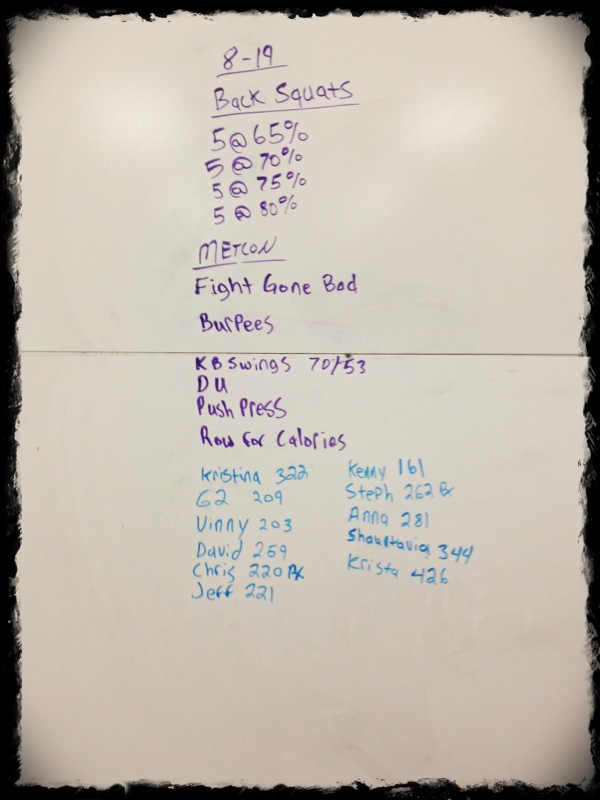 8-19
Back Squats
5@65%
5@70%
5@75%
5@80%
METCON
Fight Gone Bad
Burpees
KB Swings 70/53
DU
Push Press
Row for Calories
Kristina 322
G2 209
Vinny 203
David 259
Chris 220 Rx
Jeff 221
Kenny 161
Steph 262 Rx
Anna 281
344
Krista 426